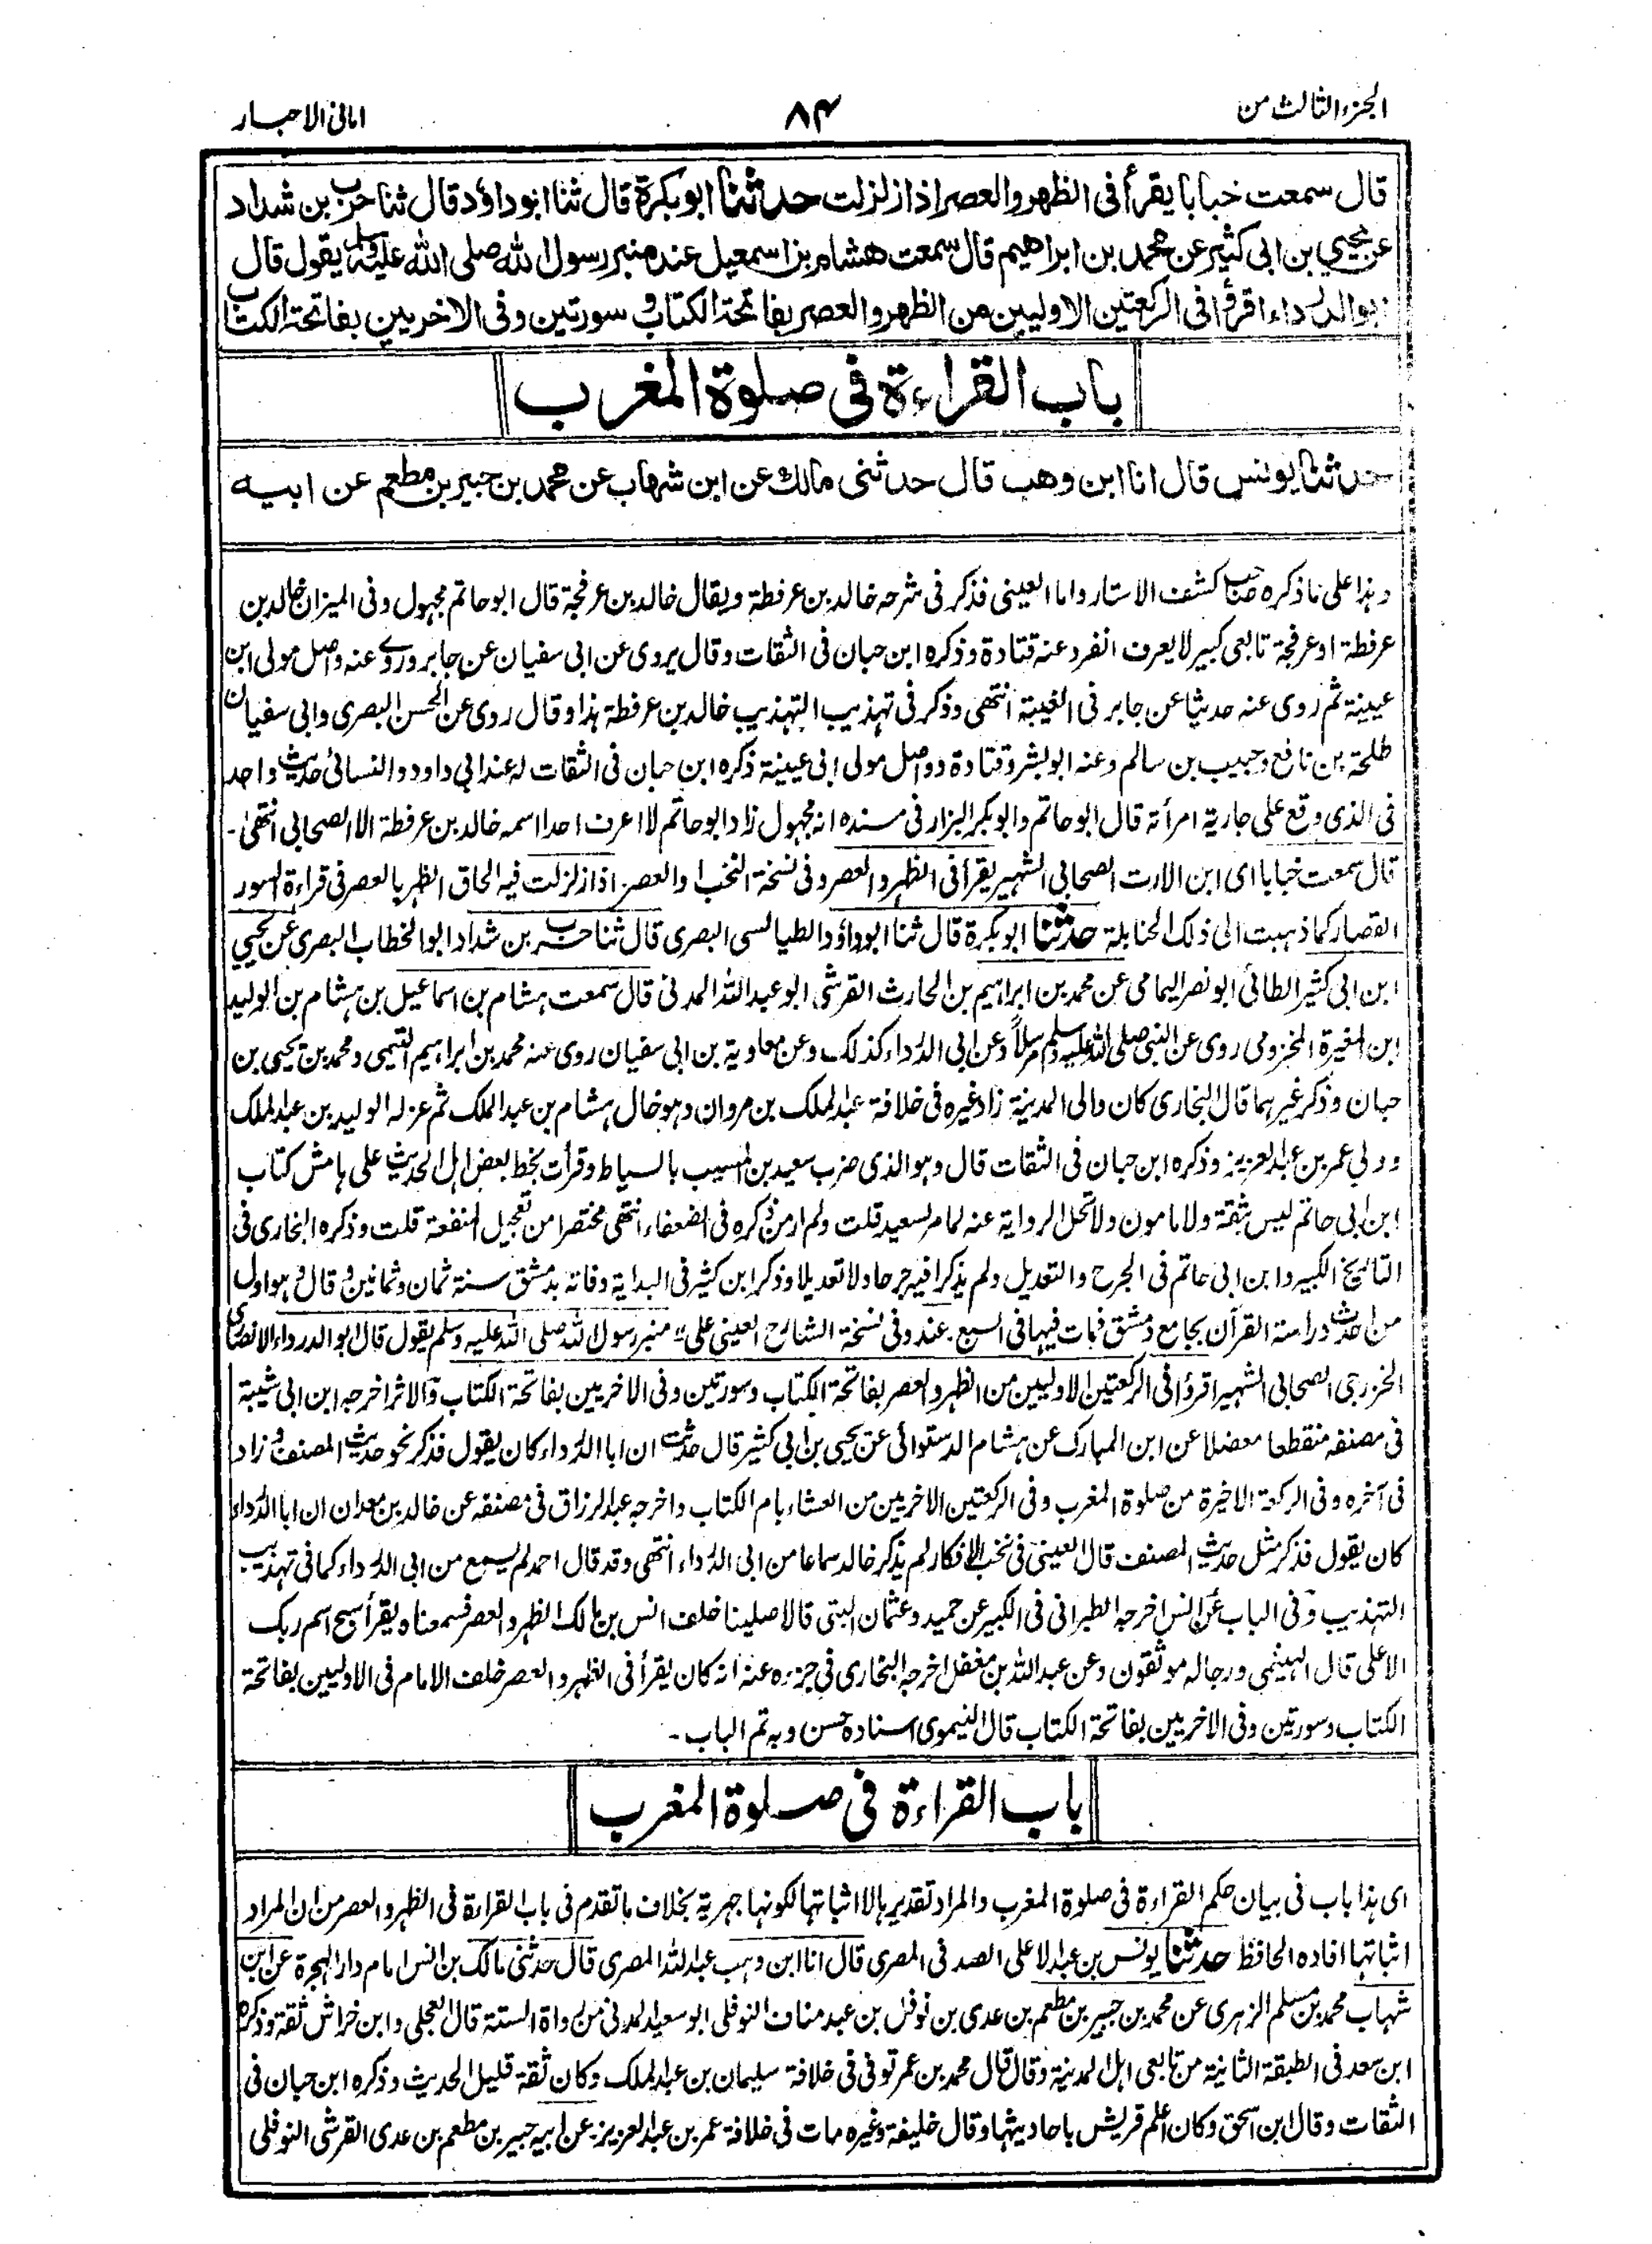 الجزء الثالث من
٨٤
امانی الاحبار
قال سمعت خبابا يقرأ فى الظهر والعصر اذا زلزلت حدثنا ابو بكرة قال ثنا ابو داؤد قال ثنا حرب بن شداد
عن يحيي بن ابى كثير عن محمد بن ابراهيم قال سمعت هشام بن اسمعيل عند منبر رسول الله صلى الله عليه وسلم يقول قال
ابو الدرداء اقرؤا فى الركعتين الاوليين من الظهر والعصر بفاتحة الكتاب و سورتين وفى الاخريين بفاتحة الكتاب
باب القراءة فى صلوة المغرب
حدثنا يونس قال انا ابن وهب قال حدثنى مالك عن ابن شهاب عن محمد بن جبير بن مطعم عن ابيه
وہذا على ما ذكره صاحب كشف الاستار واما العينى فذكر فى شرحه خالد بن عرفطة ويقال خالد بن عرفجة قال ابو حاتم مجہول وفى الميزان خالد بن
عرفطة اوعرفجة تابعى كبير لا يعرف انفرد عنه قتادة وذكره ابن حبان فى الثقات وقال يروى عن ابى سفيان عن جابر وروے عنه واصل مولى ابن
عيينة ثم روى عنه حديثا عن جابر فى الغيبة انتهى وذكر فى تہذيب التہذيب خالد بن عرفطة ہذا وقال روى عن الحسن البصرى وابى سفيان
طلحة بن نافع وحبيب بن سالم وعنه ابو بشر وقتادة و واصل مولى ابى عيينة ذكره ابن حبان فى الثقات له عند ابي داود والنسائى حديث واحد
فى الذى وقع على جارية امرأته قال ابو حاتم وابو بكر البزار فى مسنده انه مجہول زاد ابو حاتم لا اعرف احدا اسمه خالد بن عرفطة الا الصحابى انتهىٰ۔
قال سمعت خبابا اى ابن الارت الصحابي الشہير يقرأ فى الظہر والعصر وفى نسخة النخب او العصر اذا زلزلت فيه الحاق الظہر بالعصر فى قراءة السور
القصار كما ذہبت الى ذلك الحنابلة حدثنا ابو بكرة قال ثنا ابو داؤد الطيالسى البصرى قال ثنا حرب بن شداد ابو الخطاب البصرى عن يحيي
ابن ابى كثير الطائى ابو نصر اليمامى عن محمد بن ابراہيم بن الحارث القرشى ابو عبد الله المدنى قال سمعت ہشام بن اسماعيل بن ہشام بن الوليد
ابن المغيرة المخزومى روى عن النبى صلى الله عليه وسلم مرسلاً وعن ابى الدرداء كذلك وعن معاوية بن ابى سفيان روى عنه محمد بن ابراہيم التيمى ومحمد بن يحيى بن
حبان وذكر غيرہما قال البخارى كان والى المدينة زاد غيره فى خلافة عبد الملك بن مروان وہو خال ہشام بن عبد الملك ثم عزله الوليد بن عبد الملك
و ولى عمر بن عبد العزيز وذكره ابن حبان فى الثقات قال وہو الذى ضرب سعيد بن المسيب بالسياط وقرأت بخط بعض اہل الحديث على ہامش كتاب
ابن ابى حاتم ليس بثقة ولا مامون ولا تحل الرواية عنه لما مر لسعيد قلت ولم ار من ذكره فى الضعفاء انتهى مختصرا من تعجيل المنفعة قلت وذكره البخارى فى
التاريخ الكبير وابن ابى حاتم فى الجرح والتعديل ولم يذكرا فيه جرحا ولا تعديلا وذكر ابن كثير فى البداية وفاته بدمشق سنة ثمان وثمانين و قال و ہو اول
من احدث دراسة القرآن بجامع دمشق فمات فيها فى السبع۔ عند وفى نسخة الشارح العينى على "منبر رسول الله صلى الله عليه وسلم يقول قال ابو الدرداء الانصارى
الخزرجى الصحابى الشہير اقرؤا فى الركعتين الاوليين من الظہر والعصر بفاتحة الكتاب وسورتين وفى الاخريين بفاتحة الكتاب والاثر اخرجه ابن ابى شيبة
فى مصنفه منقطعا معضلا عن ابن المبارك عن ہشام الدستوائى عن يحيى بن ابى كثير قال حدثت ان ابا الدرداء كان يقول فذكر نحو حديث المصنف و زاد
فى آخره وفى الركعة الاخيرة من صلوة المغرب وفى الركعتين الاخريين من العشاء بام الكتاب واخرجه عبد الرزاق فى مصنفه عن خالد بن معدان ان ابا الدرداء
كان يقول فذكر مثل حديث المصنف قال العينى فى نخب الافكار لم يذكر خالد سماعا من ابى الدرداء انتهى وقد قال احمد لم يسمع من ابى الدرداء كما فى تہذيب
التہذيب وفى الباب عن انس اخرجه الطبرانى فى الكبير عن حميد وعثمان البتى قالا صلينا خلف انس بن مالك الظہر والعصر فسمعناه يقرأ سبح اسم ربك
الاعلى قال الہيثمى ورجاله موثقون وعن عبد الله بن مغفل اخرجه البخارى فى جزءه عنه انه كان يقرأ فى الظہر والعصر خلف الامام فى الاوليين بفاتحة
الكتاب وسورتين وفى الاخريين بفاتحة الكتاب قال النيموى اسناده حسن وبه تم الباب۔
باب القراءة فى صلوة المغرب
اى ہذا باب فى بيان حكم القراءة فى صلوة المغرب والمراد تقديرہا لا اثباتها لكونها جہرية بخلاف ما تقدم فى باب القراءة فى الظہر والعصر من ان المراد
اثباتها افاده الحافظ حدثنا يونس بن عبد الاعلى الصدفى المصرى قال انا ابن وہب عبد الله المصرى قال حدثنى مالك بن انس امام دار الہجرة عن ابن
شہاب محمد بن مسلم الزہرى عن محمد بن جبير بن مطعم بن عدى بن نوفل بن عبد مناف النوفلى ابو سعيد المدنى من رواة الستة قال العجلى وابن خراش ثقة وذكره
ابن سعد فى الطبقة الثانية من تابعى اہل المدينة وقال قال محمد بن عمر توفى فى خلافة سليمان بن عبد الملك وكان ثقة قليل الحديث وذكره ابن حبان فى
الثقات وقال ابن اسحق وكان اعلم قريش باحاديثها وقال خليفة وغيره مات فى خلافة عمر بن عبد العزيز۔ عن ابيه جبير بن مطعم بن عدى القرشى النوفلى